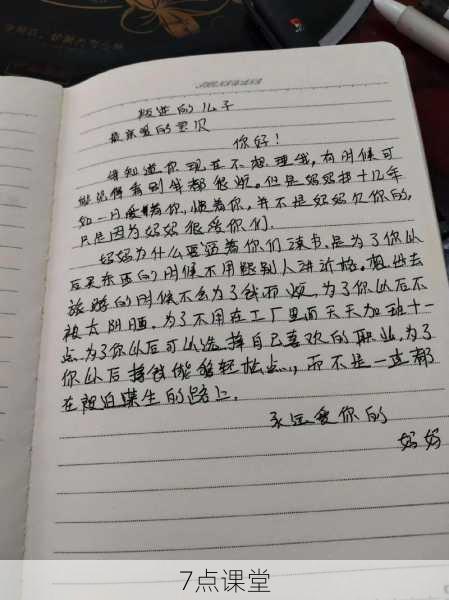 叛逆的儿子
最亲爱的宝贝
你好!
妈知道你现在不想理我,有时候可
能觉得看到我都很烦。但是妈妈把十几年
如一日爱着你,惯着你,并不是妈妈欠你的,
只是因为妈妈很爱你们.
妈妈为什么要逼着你们读书,是为了你以
后买东西的时候不用跟别人讲价格。想出去
旅游的时候不会为了钱而烦,为了你以后不
被太阳晒,为了不用在工厂里面天天加班十一
点.为了你以后可以选择自己喜欢的职业,为了
你以后挣钱能够轻松点,,而不是一直都
在被迫谋生的路上.
永远爱你的
妈妈
7点课堂